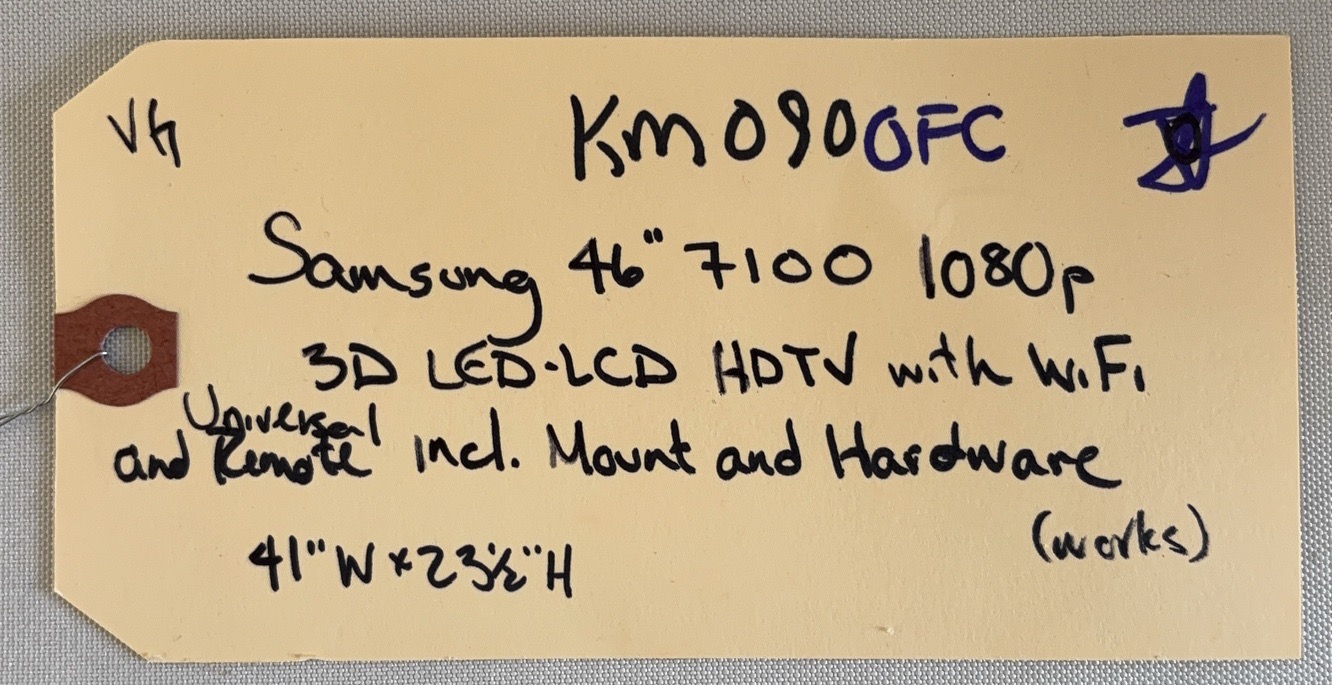 VG
KM090OFC
Samsung 46" 7100 1080p
3D LED-LCD HDTV with WiFi
and Universal Remote incl. Mount and Hardware
(works)
41"W x 23½"H